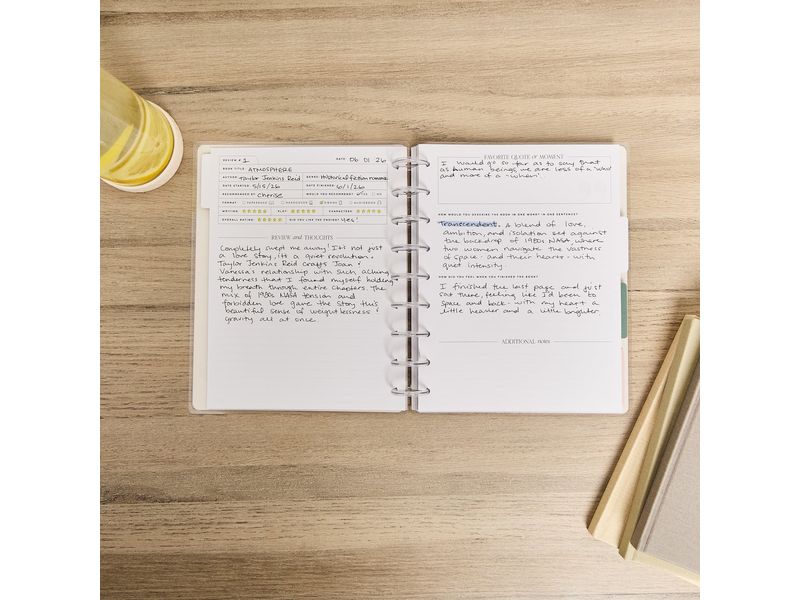 REVIEW # 1 DATE 06 01 26
BOOK TITLE ATMOSPHERE
AUTHOR Taylor Jenkins Reid GENRE Historical fiction romance
DATE STARTED 5/15/26 DATE FINISHED 6/1/26
RECOMMENDED BY Cherise WOULD YOU RECOMMEND? YES NO
FORMAT PAPERBACK HARDCOVER EBOOK AUDIOBOOK
WRITING PLOT CHARACTERS
OVERALL RATING DID YOU LIKE THE ENDING? yes!
REVIEW and THOUGHTS
Completely swept me away! It's not just
a love story, it's a quiet revolution.
Taylor Jenkins Reid crafts Joan &
Vanessa's relationship with such aching
tenderness that I found myself holding
my breath through entire chapters. The
mix of 1980s NASA tension and
forbidden love gave the story this
beautiful sense of weightlessness &
gravity all at once.
FAVORITE QUOTE or MOMENT
I would go so far as to say that
as human beings we are less of a 'who'
and more of a 'when'.
HOW WOULD YOU DESCRIBE THE BOOK IN ONE WORD? IN ONE SENTENCE?
Transcendent. A blend of love,
ambition, and isolation set against
the backdrop of 1980s NASA where
two women navigate the vastness
of space - and their hearts - with
quiet intensity.
HOW DID YOU FEEL WHEN YOU FINISHED THE BOOK?
I finished the last page and just
sat there, feeling like I'd been to
space and back - with my heart a
little heavier and a little brighter.
ADDITIONAL notes